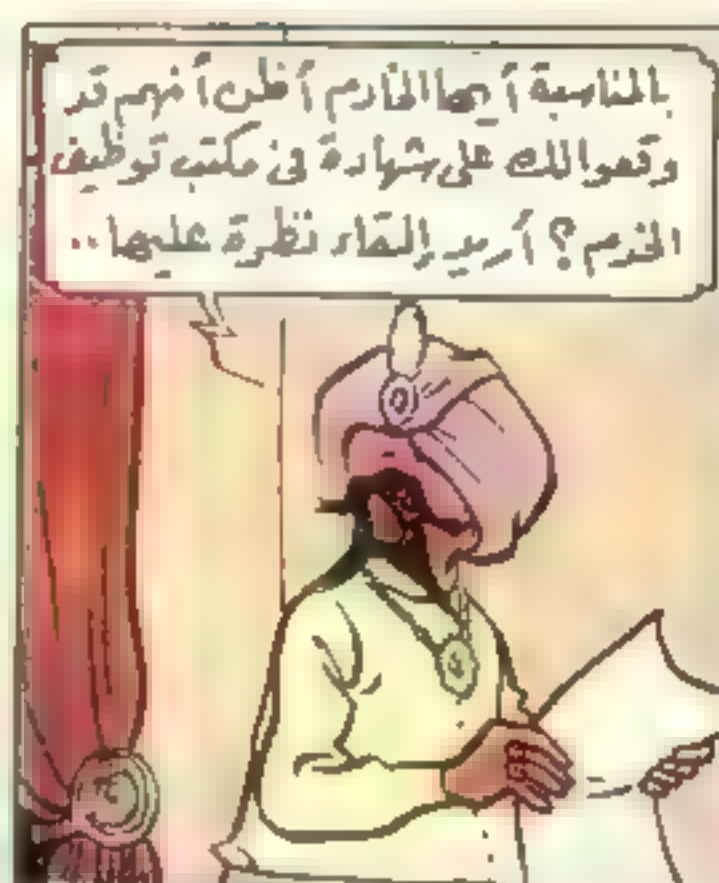 بالمناسبة أيها الخادم أظن أنهم قد
وقعوا لك على شهادة فى مكتب توظيف
الخدم؟ أريد إلقاء نظرة عليها..